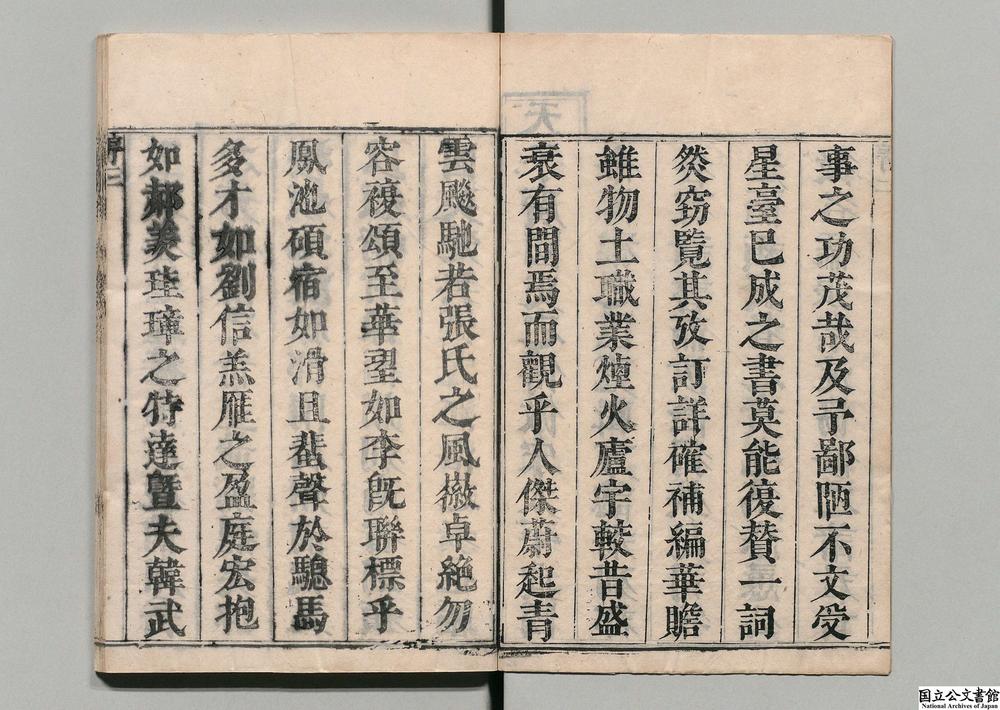 事之功茂哉及予鄙陋不文受
星臺已成之書莫能復賛一詞
然窃覽其攷訂詳確補編華贍
雖物土職業煙火廬宇較昔盛
衰有間焉而觀乎人傑蔚起青
雲飈馳若張氏之風徽卓絶勿
容複頌至華翌如李旣聯標乎
鳳池碩宿如滑且蜚聲於驄馬
多才如劉信羔雁之盈庭宏抱
如郝羙珪璋之特達曁夫韓武
序二
天
国立公文書館
National Archives of Japan